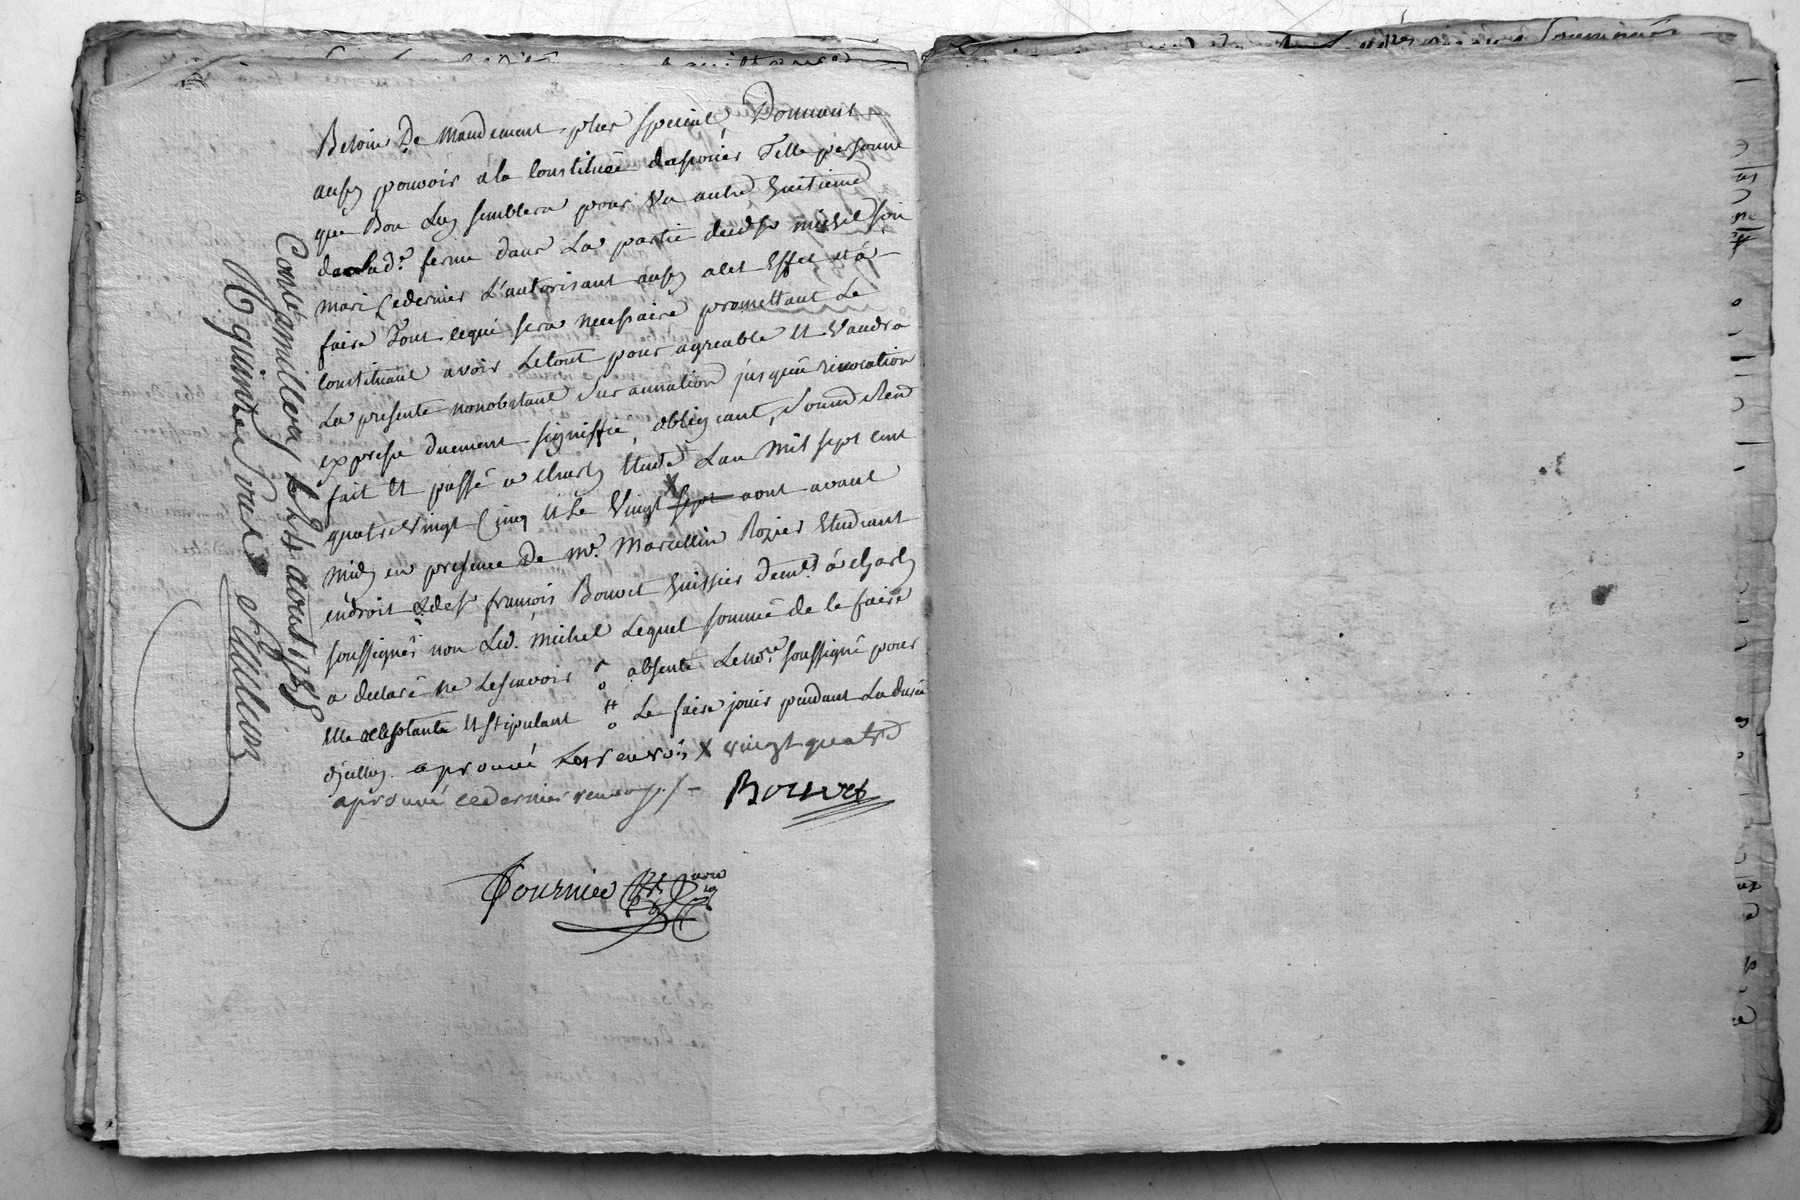 Besoin De mandement plus special, Donnant
aussy pouvoir a la Constituée dasocier Telle personne
que Bon Luy semblera pour un autre huitieme
de lad.e ferme dans La partie dud sr michel son
mari Cedernier L'autorisant aussy a cet Effet et a
faire Tout cequi sera necessaire promettant Le
Constituant avoir Letout pour agreable et Vaudra
La presente nonobstant Sur annation jusqu'a revocation
expresse duement signiffiée, obligeant, Soumet Rend
fait et passé a charly Etude Lan mil sept cent
quatrevingt Cinq et Le Vingt X sept aout avant
midy en presence de mr. Marcellin Rozier Etudiant
endroit & de sr françois Bouvet huissier demt. à charly
soussignés non Led. michel Lequel sommé de le faire
a declaré ne Lesçavoir absente Leno.re soussigné pour
Elle acceptante et stipulant Le faire jouir pendant La durée
dicelluy. aprouvé Les renvois X vingt quatre
aprouvé cedernier renvoy ./-
Bouvet
Fournier
Conlé a millery le 24 aout 1785
R quinze sous